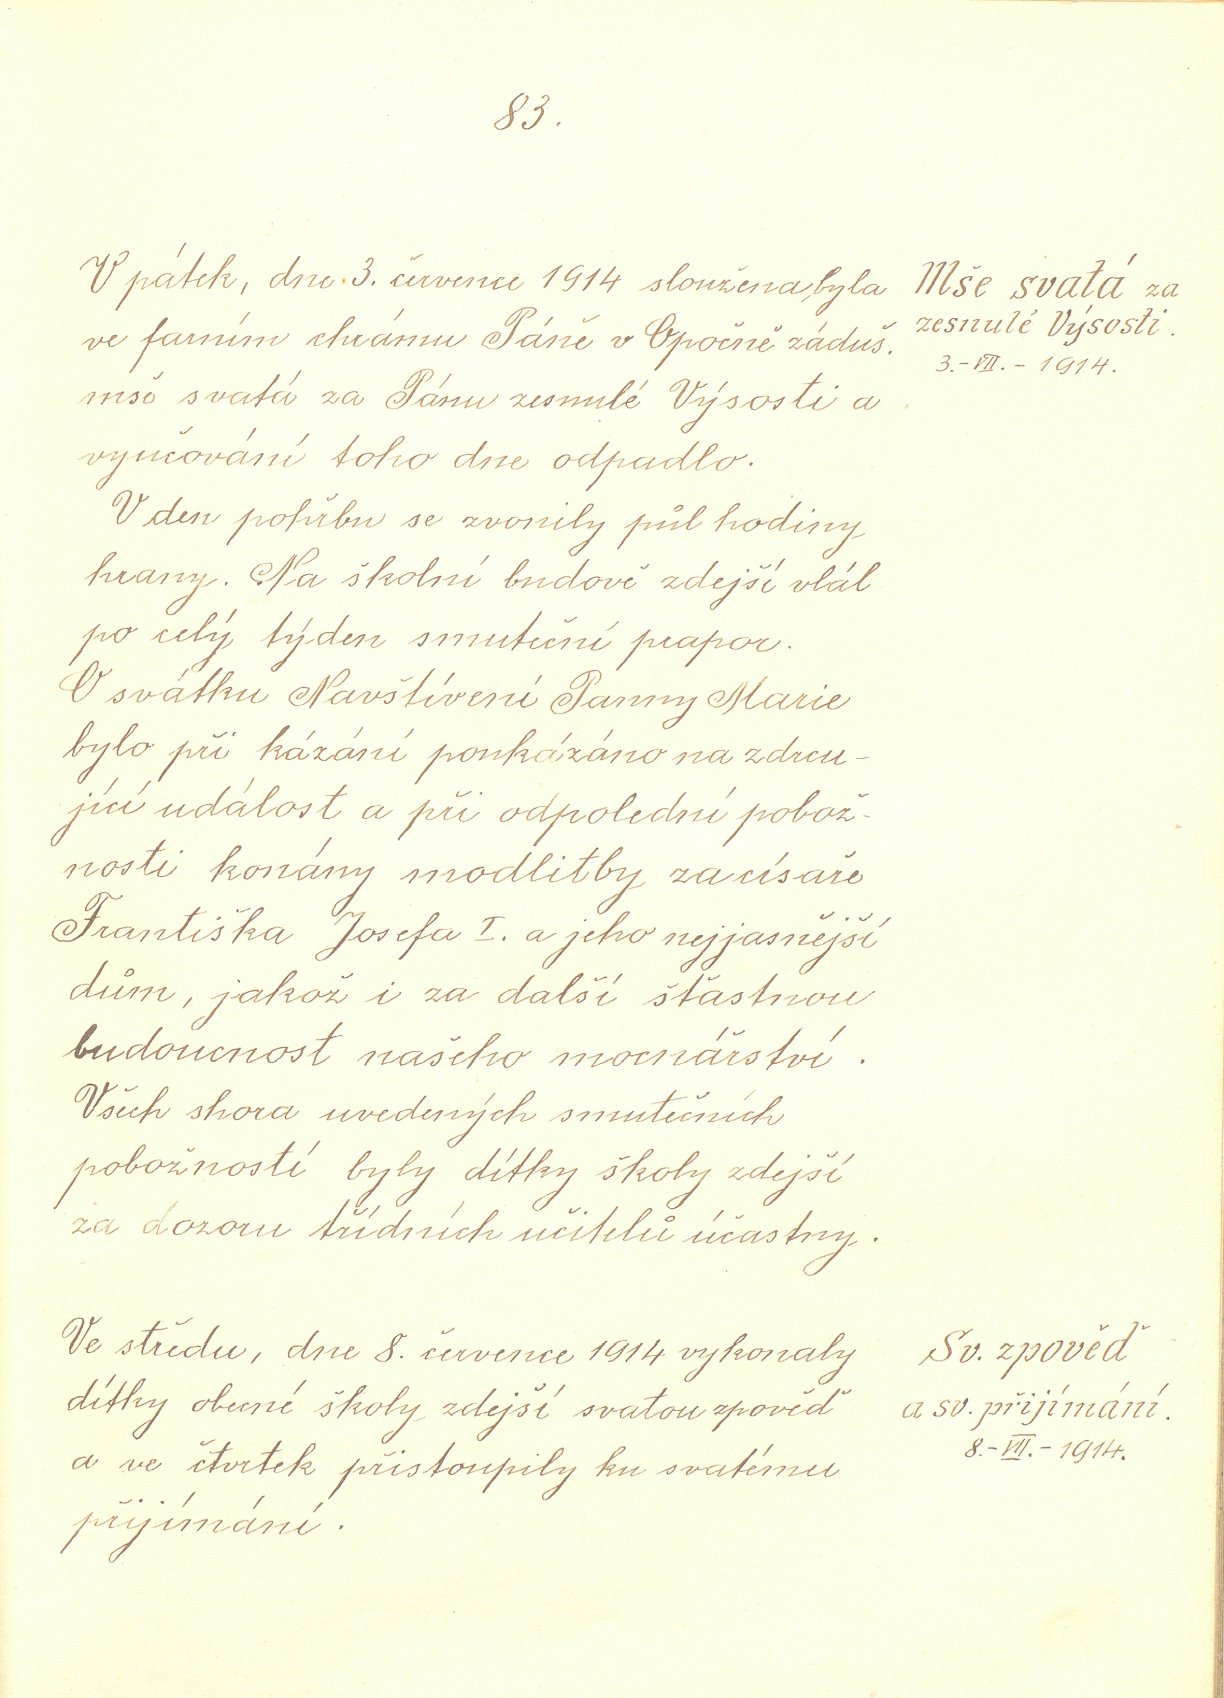 83.
V pátek, dne 3. července 1914 sloužena byla
ve farním chrámu Páně v Opočně záduš.
mše svatá za Pánu zesnulé Výsosti a
vyučování toho dne odpadlo.
V den pohřbu se zvonily půl hodiny
hrany. Na školní budově zdejší vlál
po celý týden smuteční prapor.
O svátku Navštívení Panny Marie
bylo při kázání poukázáno na zdrcu-
jící událost a při odpolední pobož-
nosti konány modlitby za císaře
Františka Josefa I. a jeho nejjasnější
dům, jakož i za další šťastnou
budoucnost našeho mocnářství.
Všech shora uvedených smutečních
pobožností byly dítky školy zdejší
za dozoru třídních učitelů účastny.
Ve středu, dne 8. července 1914 vykonaly
dítky obecné školy zdejší svatou zpověď
a ve čtvrtek přistoupily ku svatému
přijímání.
Mše svatá za
zesnulé Výsosti.
3.-VII.-1914.
Sv. zpověď
a sv. přijímání.
8.-VII.-1914.